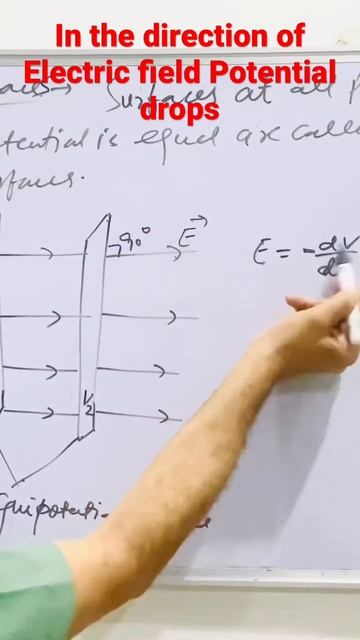 In the direction of
Electric field Potential
drops
Surfaces at all P
tential is equal are calle
rfaces.
90° E→
E = -dV
d
V2
Equipotenti